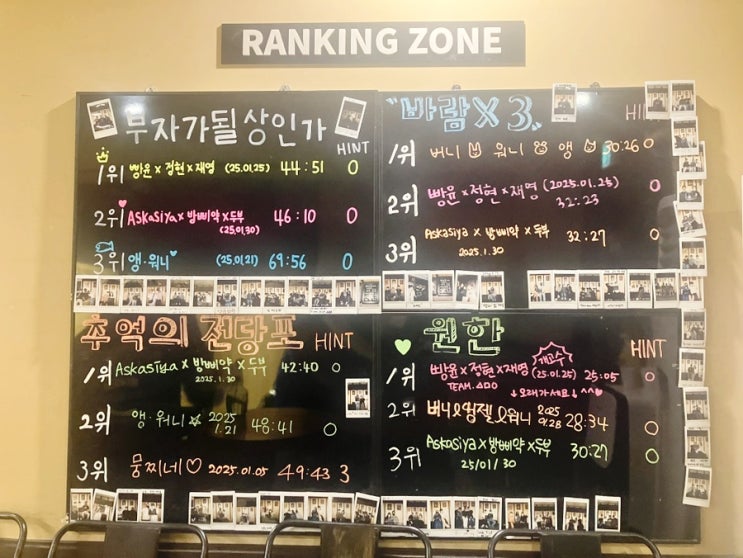 RANKING ZONE
부자가될상인가
HINT
1위 빵윤×정현×재영 (25.01.25) 44:51 0
2위 Askasiya×밤삐약×두부 46:10 0
(25.01.30)
3위 앵·워니♥ (25.01.21) 69:56 0
"바람×3"
HINT
1위 버니 워니 앵 30:26 0
2위 빵윤×정현×재명 (2025.01.25) 0
32:23
3위 Askasiya×밤삐약×두부 32:27 0
2025.1.30
추억의 전당포 HINT
1위 Askasiya×밤삐약×두부 42:40 0
2025.1.30
2위 앵·워니☆ 2025 48:41 0
1.21
3위 뭉찌네♡ 2025.01.05 49:43 3
원한
HINT
개고수
1위 빵윤×정현×재명 (25.01.25) 25:05 0
TEAM. ADO ↓오래가세요↓ ^^♥
2위 28:34 0
3위 Askasiya×밤삐약×두부 30:27 0
25/01/30